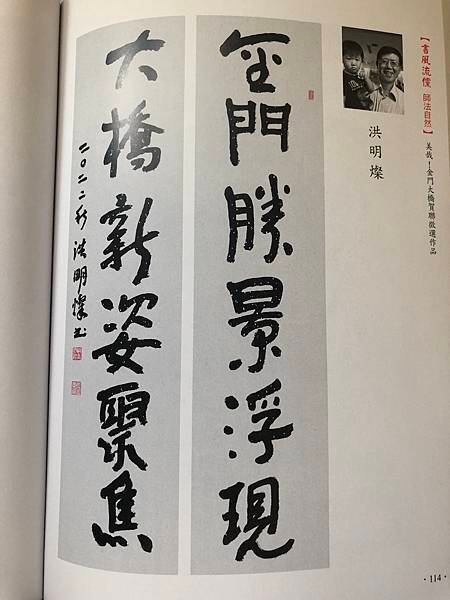 【書風流懷 師法自然】
美哉!金門大橋賀聯徵選作品
洪明燦
金門勝景浮現
大橋新姿聚焦
二〇二二秋 洪明燦書
·114·